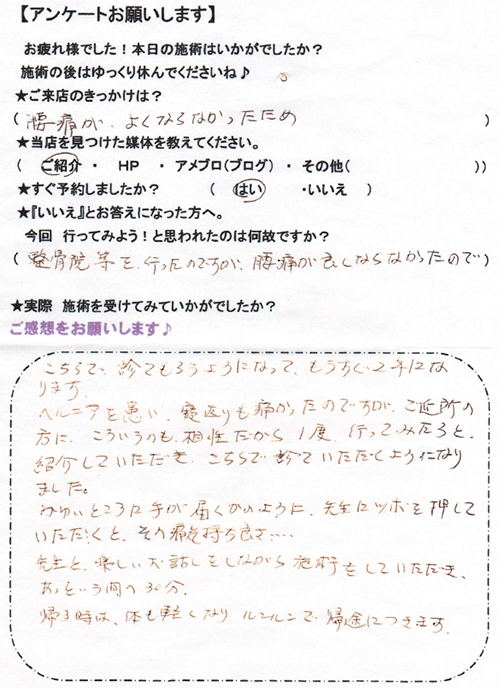 【アンケートお願いします】
お疲れ様でした！本日の施術はいかがでしたか？
施術の後はゆっくり休んでくださいね♪
★ご来店のきっかけは？
( 腰痛が、よくならなかったため )
★当店を見つけた媒体を教えてください。
( ご紹介 ・ ＨＰ ・ アメブロ（ブログ） ・ その他( ))
★すぐ予約しましたか？ ( はい ・いいえ )
★『いいえ』とお答えになった方へ。
今回 行ってみよう！と思われたのは何故ですか？
( 整骨院等を、行ったのですが、腰痛が良くならなかったので )
★実際 施術を受けてみていかがでしたか？
ご感想をお願いします♪
こちらで、診てもらうようになって、もうすぐ2年にな
ります。
ヘルニアを患い、寝返りも痛かったのですが、ご近所の
方に、こういうのも、相性だから、1度、行ってみたらと、
紹介していただき、こちらで診ていただくようになり
ました。
かゆいところに手が届くかのように、先生にツボを押して
いただくと、その痛気持ち良さ……
先生と、楽しいお話しをしながら施術をしていただき、
あっという間の30分。
帰る時は、体も軽くなりルンルンで帰途につきます。